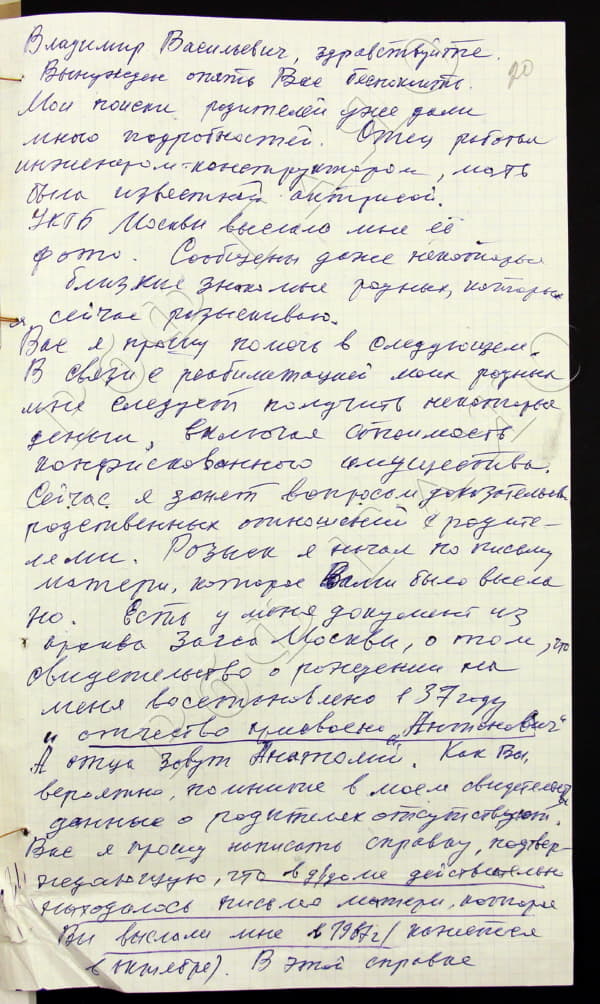 20
Владимир Васильевич, здравствуйте.
Вынужден опять Вас беспокоить.
Мои поиски родителей уже дали
много подробностей. Отец работал
инженером-конструктором, мать
была известной актрисой.
УКГБ Москвы выслало мне её
фото. Сообщены даже некоторые
близкие знакомые родных, которых
я сейчас разыскиваю.
Вас я прошу помочь в следующем.
В связи с реабилитацией моих родных
мне следует получить некоторые
деньги, включая стоимость
конфискованного имущества.
Сейчас я занят вопросом доказательств
родственных отношений с родите-
лями. Розыск я начал по письму
матери, которое Вами было высла
но. Есть у меня документ из
архива Загса Москвы, о том, что
свидетельство о рождении на
меня восстановлено в 37 году
и отчество присвоено "Антонович"
А отца зовут Анатолий. Как Вы,
вероятно, помните в моем свидетельстве
данные о родителях отсутствуют.
Вас я прошу написать справку, подтвер-
ждающую, что в д/доме действительно
находилось письмо матери, которое
Вы выслали мне в 1967г (кажется
в октябре). В этой справке